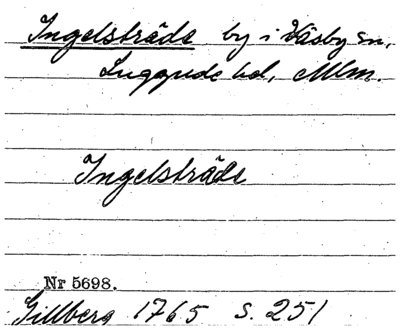 Ingelsträde by i Väsby sn,
Luggude hd, Mlm.
Ingelsträde
Nr 5698.
Gillberg 1765 s. 251